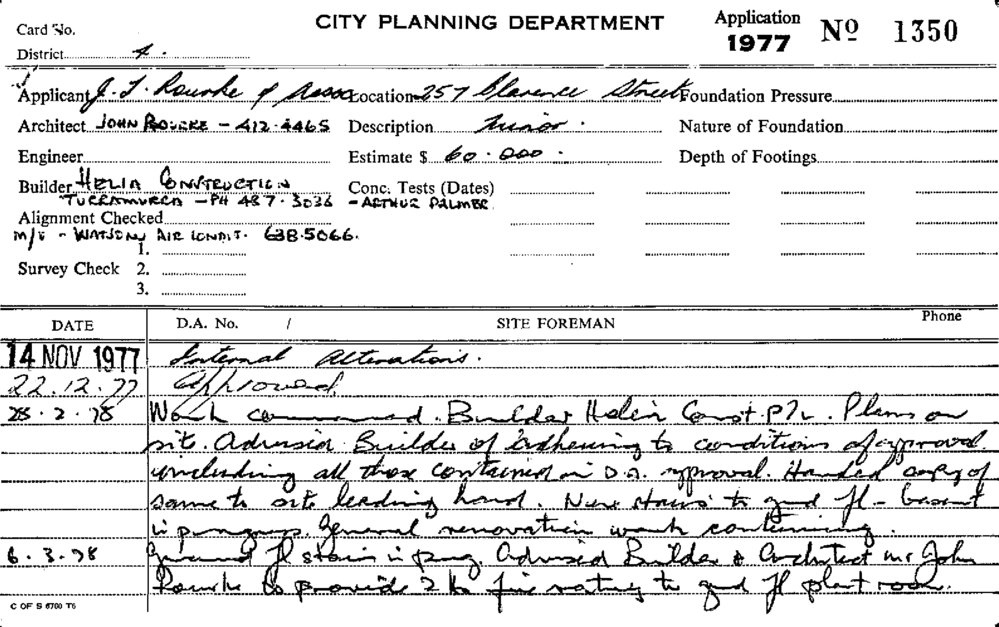 Card No.
CITY PLANNING DEPARTMENT
Application
1977
Nº 1350
District 4.
Applicant J. T. Rourke & Assoc Location 257 Clarence Street Foundation Pressure
Architect JOHN ROURKE - 412.4465 Description Minor. Nature of Foundation
Engineer Estimate $ 60.000. Depth of Footings
Builder HELIA CONSTRUCTION Conc. Tests (Dates)
TURRAMURRA - PH 487.3036 - ARTHUR PALMER
Alignment Checked
M/V - WATSONS AIR CONDIT. 638.5066.
1.
Survey Check 2.
3.
DATE D.A. No. / SITE FOREMAN Phone
14 NOV 1977 Internal Alterations.
22.12.77 Approved.
28.2.78 Work commenced. Builder Const P/L. Plans on
site. Advised Builder of adhering to conditions of approval
including all those contained in D.A. approval. Handed copy of
same to site leading hand. New stairs to gnd fl - basemt
in progress. General renovation work continuing.
6.3.78 Ground fl stairs in prog. Advised Builder & Architect Mr John
Rourke to provide 2 hr fire rating to gnd fl plant room.
C OF S 6700 T6